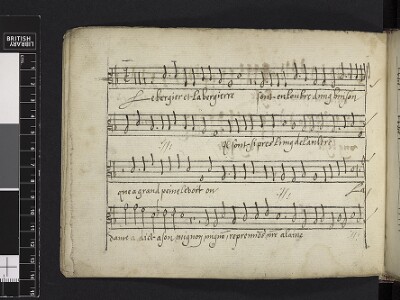 BRITISH
LIBRARY
Le bergier et la bergierre sont en l'aubre dung buisson
Ilz sont si pres l'ung de l'aultre
que a grand peine le voit on La
dame a dict a son mignon reprenés alaine